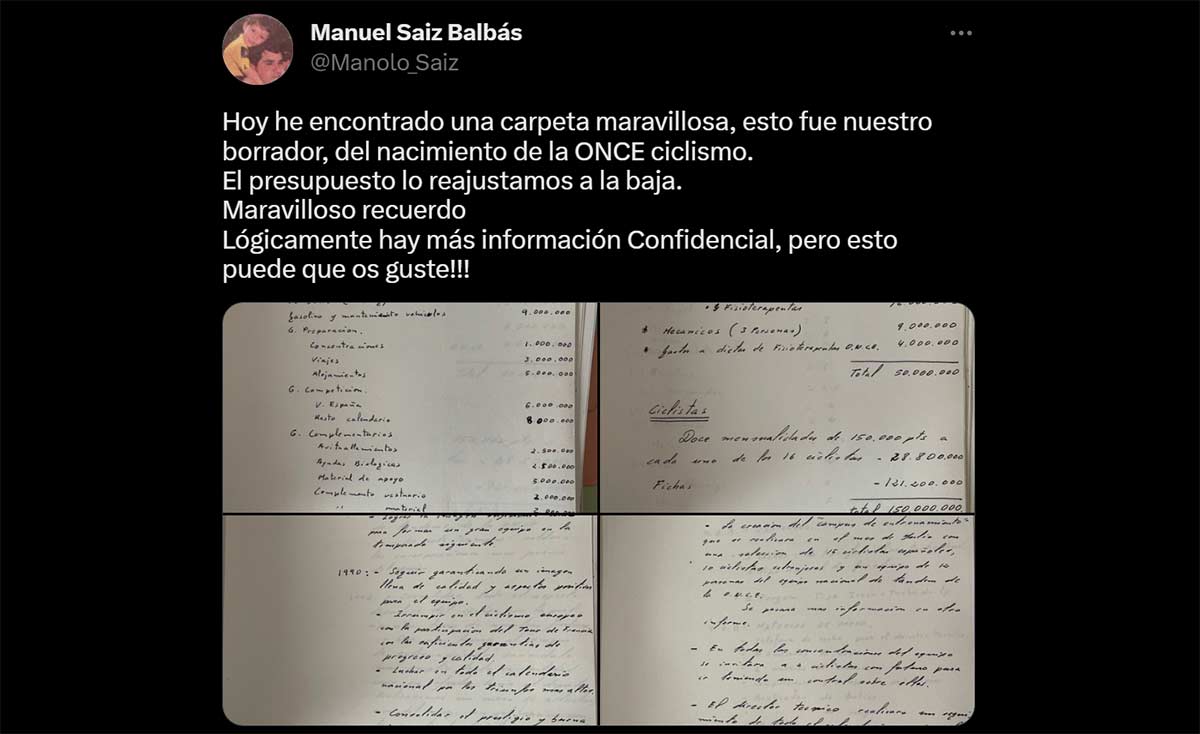 Manuel Saiz Balbás
@Manolo_Saiz
Hoy he encontrado una carpeta maravillosa, esto fue nuestro
borrador, del nacimiento de la ONCE ciclismo.
El presupuesto lo reajustamos a la baja.
Maravilloso recuerdo
Lógicamente hay más información Confidencial, pero esto
puede que os guste!!!
Gasolina y mantenimiento vehiculos 9.000.000
G. Preparacion.
Concentraciones 1.000.000
Viajes 3.000.000
Alojamientos 5.000.000
G. Competicion.
V. España 6.000.000
Resto calendario 8.000.000
G. Complementarios
Avituallamientos 2.500.000
Ayudas Biologicas 2.500.000
Material de apoyo 5.000.000
Complemento vestuario 2.000.000
" material
Fisioterapeutas
* Mecanicos (3 Personas) 9.000.000
* Gastos a dietas de Fisioterapeutas O.N.C.E. 4.000.000
Total 50.000.000
Ciclistas
Doce mensualidades de 150.000 pts a
cada uno de los 16 ciclistas - 28.800.000
Fichas - 121.200.000
total 150.000.000
para formar un gran equipo en la
temporada siguiente
1990: - Seguir garantizando un imagen
llena de calidad y aspectos positivos
para el equipo.
- Irrumpir en el ciclismo europeo
con la participación del Tour de Francia
con las suficientes garantias de
progreso y calidad.
- Luchar en todo el calendario
nacional por los triunfos mas altos.
- Consolidar el prestigio y buena
- La creacion del "campus de entrenamiento"
que se realizara en el mes de Julio con
una seleccion de 15 ciclistas españoles,
10 ciclistas extranjeros y un equipo de 10
personas del equipo nacional de tandem de
la O.N.C.E.
Se pasara mas informacion en otro
informe.
- En todas las concentraciones del equipo
se invitara a 4 ciclistas con futuro para
ir teniendo un control sobre ellos.
- El director tecnico realizara un segui
miento de todo el